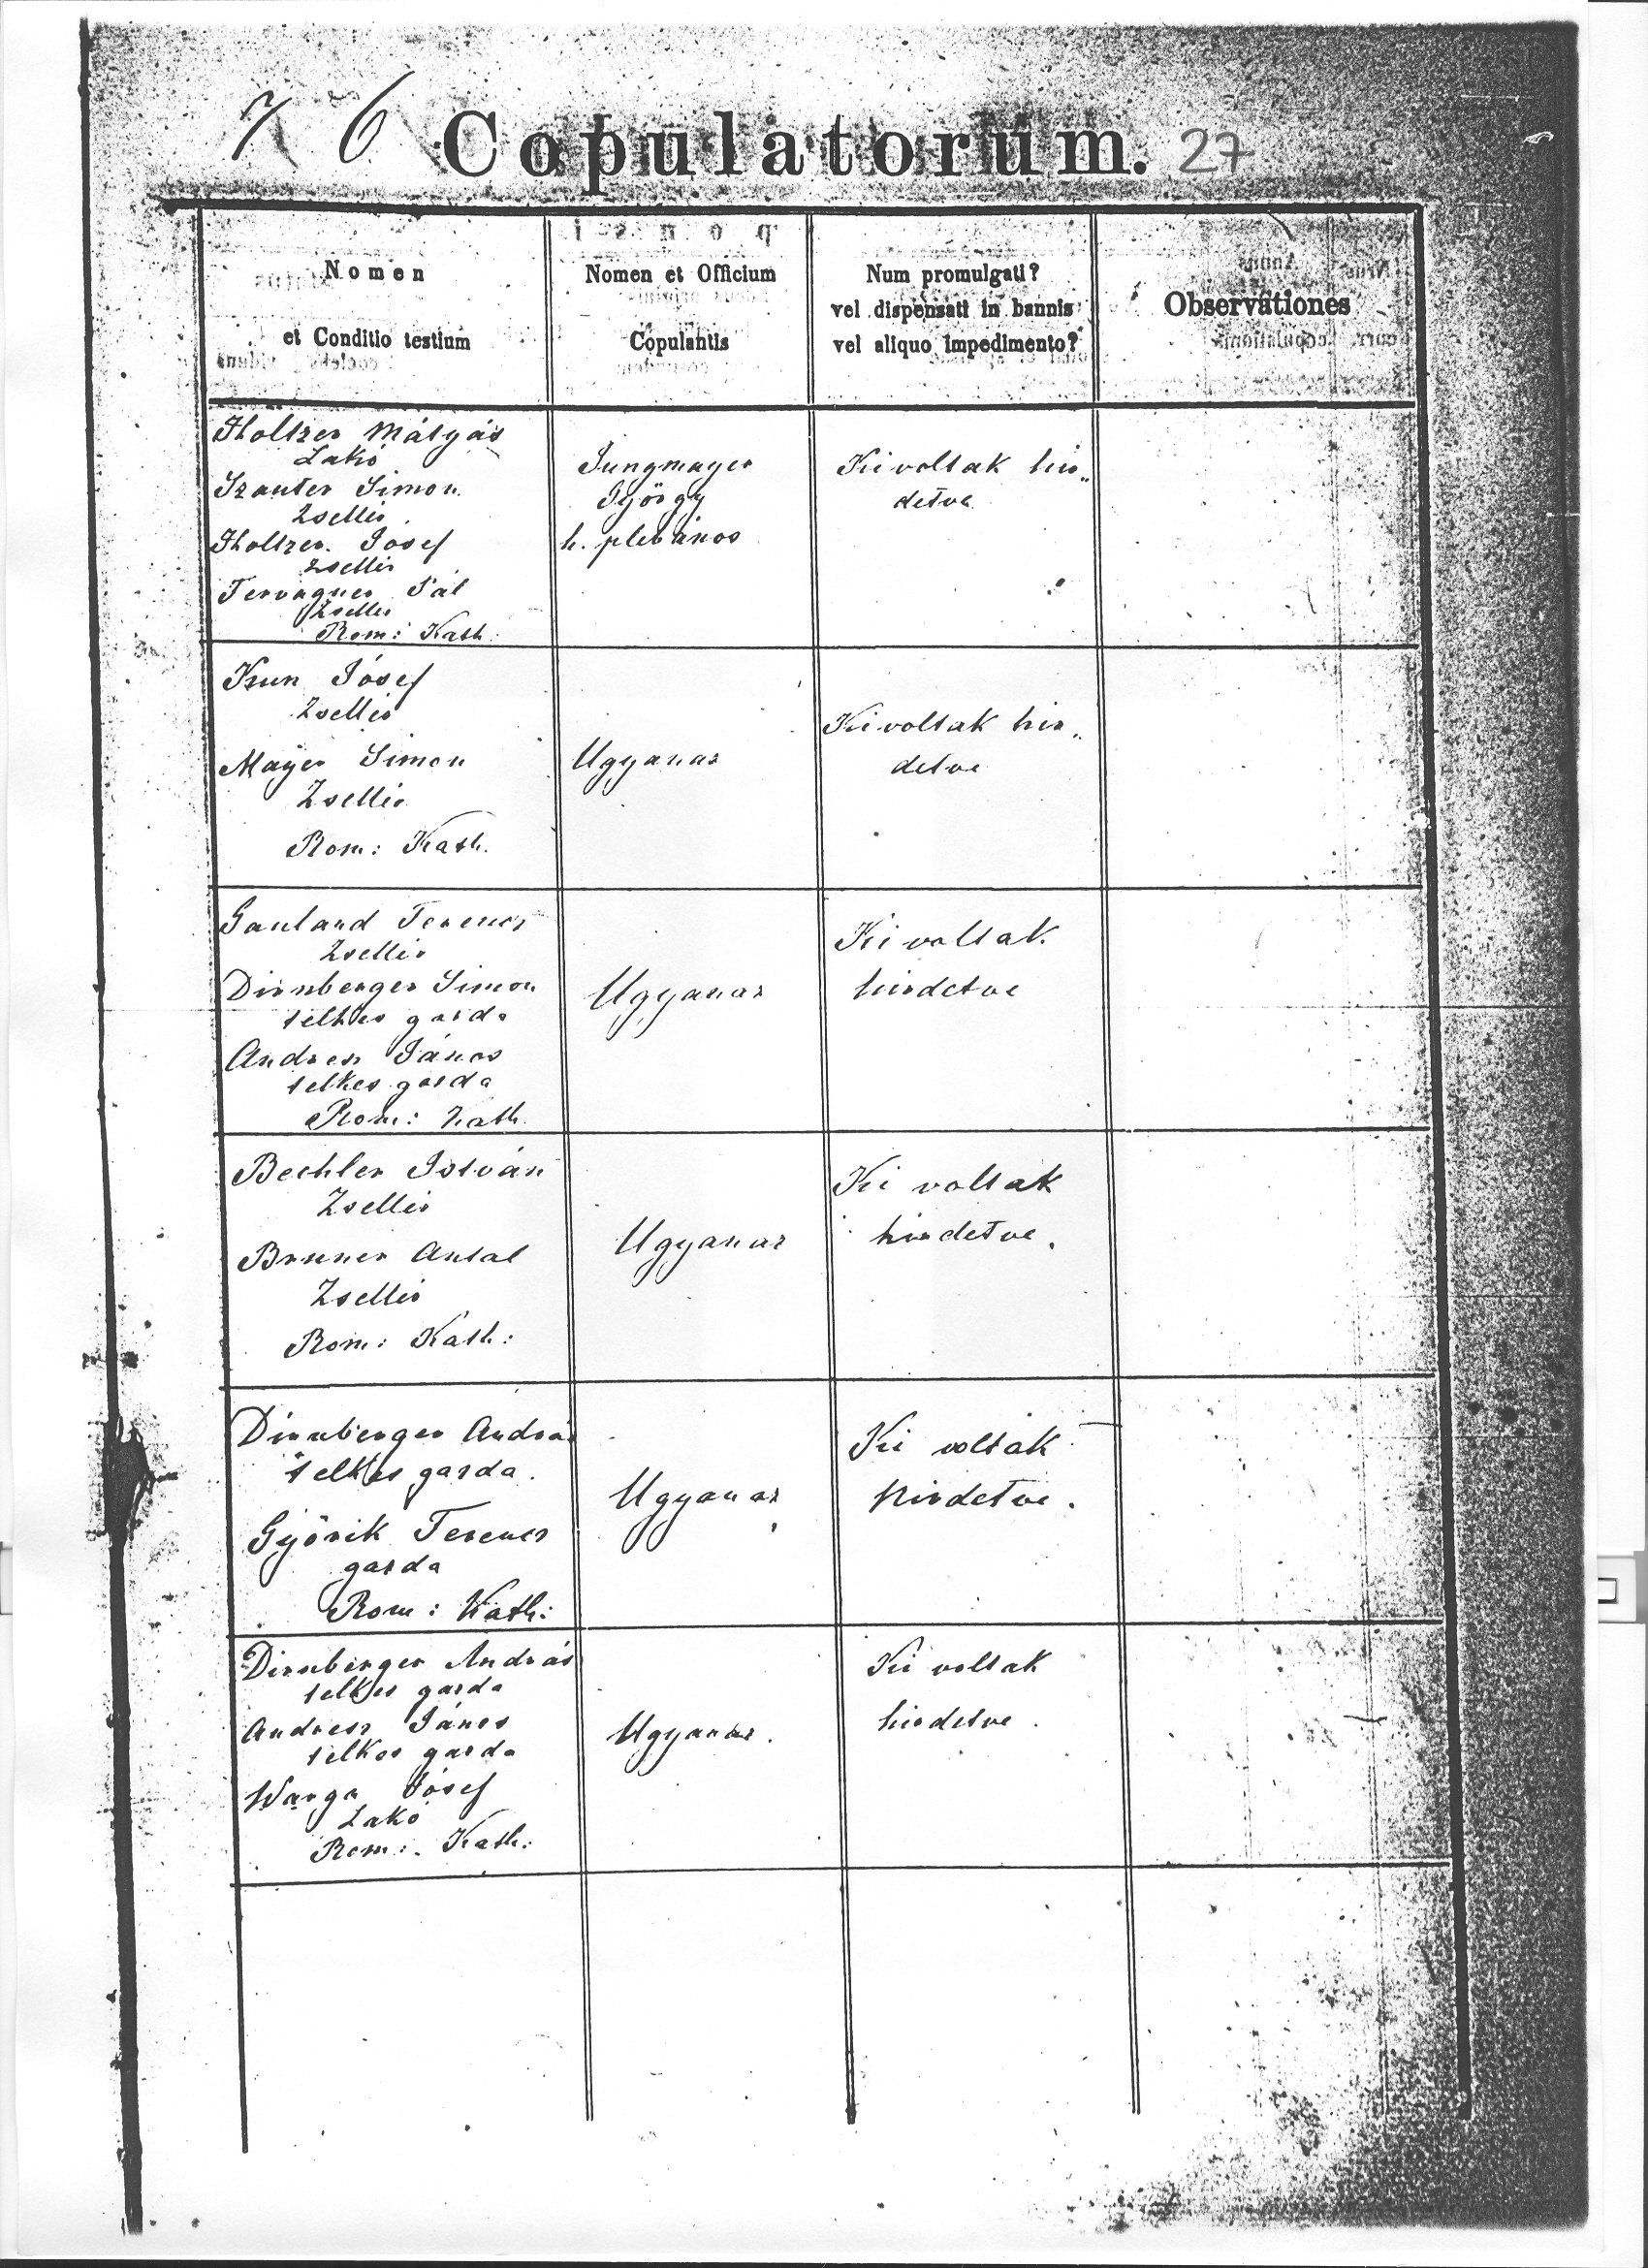 7 6 Copulatorum. 27
Nomen
et Conditio testium
Nomen et Officium
Copulantis
Num promulgati?
vel dispensati in bannis
vel aliquo impedimento?
Observationes
Holtzer Mátyás
Lakó
Szauter Simon
Zsellér
Holtzer József
Zsellér
Pál
Zsellér
Rom: Kath.
Jungmayer
György
h. plebános
Ki voltak hir„
detve
Kzun Jósef
Zsellér
Mayer Simon
Zsellér
Rom: Kath.
Ugyanaz
Ki voltak hir„
detve
Ferencz
Zsellér
Dirnberger Simon
telkes gazda
Andresz János
telkes gazda
Rom: Kath.
Ugyanaz
Ki voltak
hirdetve
Bechler István
Zsellér
Bruner Antal
Zsellér
Rom: Kath:
Ugyanaz
Ki voltak
hirdetve.
Dirnberger András
telkes gazda.
Györik Ferencz
gazda
Rom: Kath:
Ugyanaz
Ki voltak
hirdetve.
Dirnberger András
telkes gazda
Andresz János
telkes gazda
Warga Jósef
Lakó
Rom: Kath:
Ugyanaz.
Ki voltak
hirdetve.